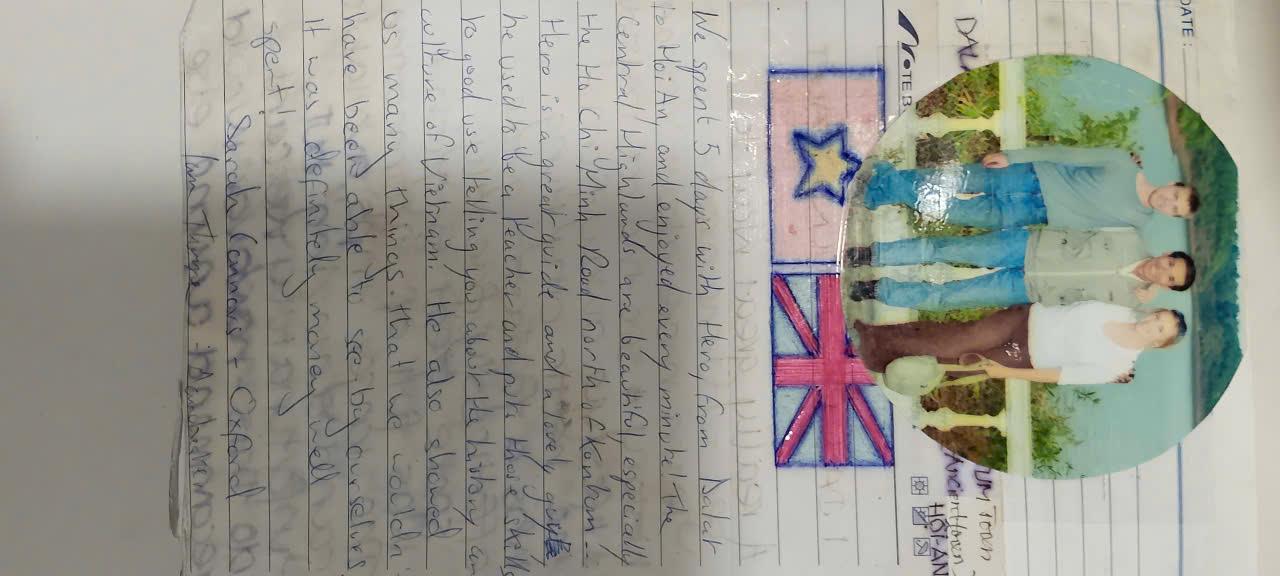 DATE:
NOTE B
UM TOWN
Ancient Town
HOI-AN
We spent 5 days with Hero, from Dalat
to Hoi An, and enjoyed every minute! The
Central Highlands are beautiful, especially
the Ho Chi Minh Road north of Kontum...
Hero is a great guide and a lovely guy
he used to be a teacher and puts those skills
to good use telling you about the history an
culture of Vietnam. He also showed
us many things that we wouldn
have been able to see by ourselves
It was definitely money well
spent!
Sarah Connors + Oxford